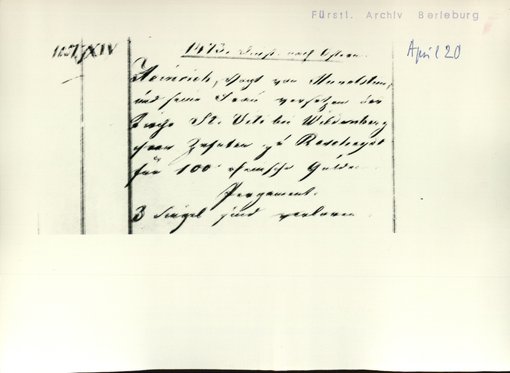 Fürstl. Archiv Berleburg
April 20
XIV
1473. nach Ostern.
Heinrich, Vogt von
und seine Frau versetzen der
Kirche St. Veit bei Wildenberg
ihren Zehnten zu
für 100 rheinische Gulden
Pergament.
3 Siegel sind verloren.